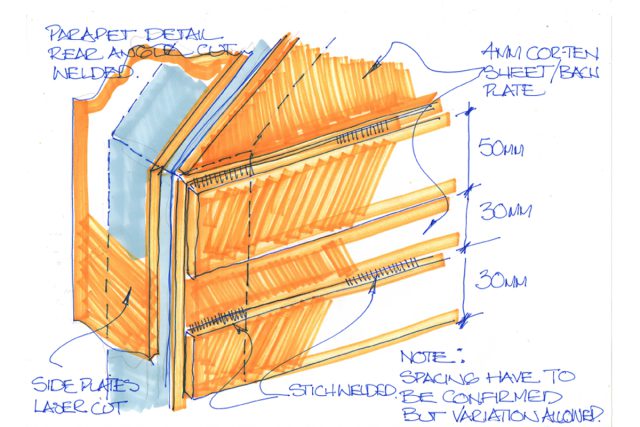 PARAPET DETAIL
REAR ANGLE CUT
WELDED.
4MM CORTEN
SHEET/BACK
PLATE
50MM
30MM
30MM
SIDE PLATES
LAZER CUT
STICHWELDED.
NOTE:
SPACING HAVE TO
BE CONFIRMED
BUT VARIATION ALLOWED.